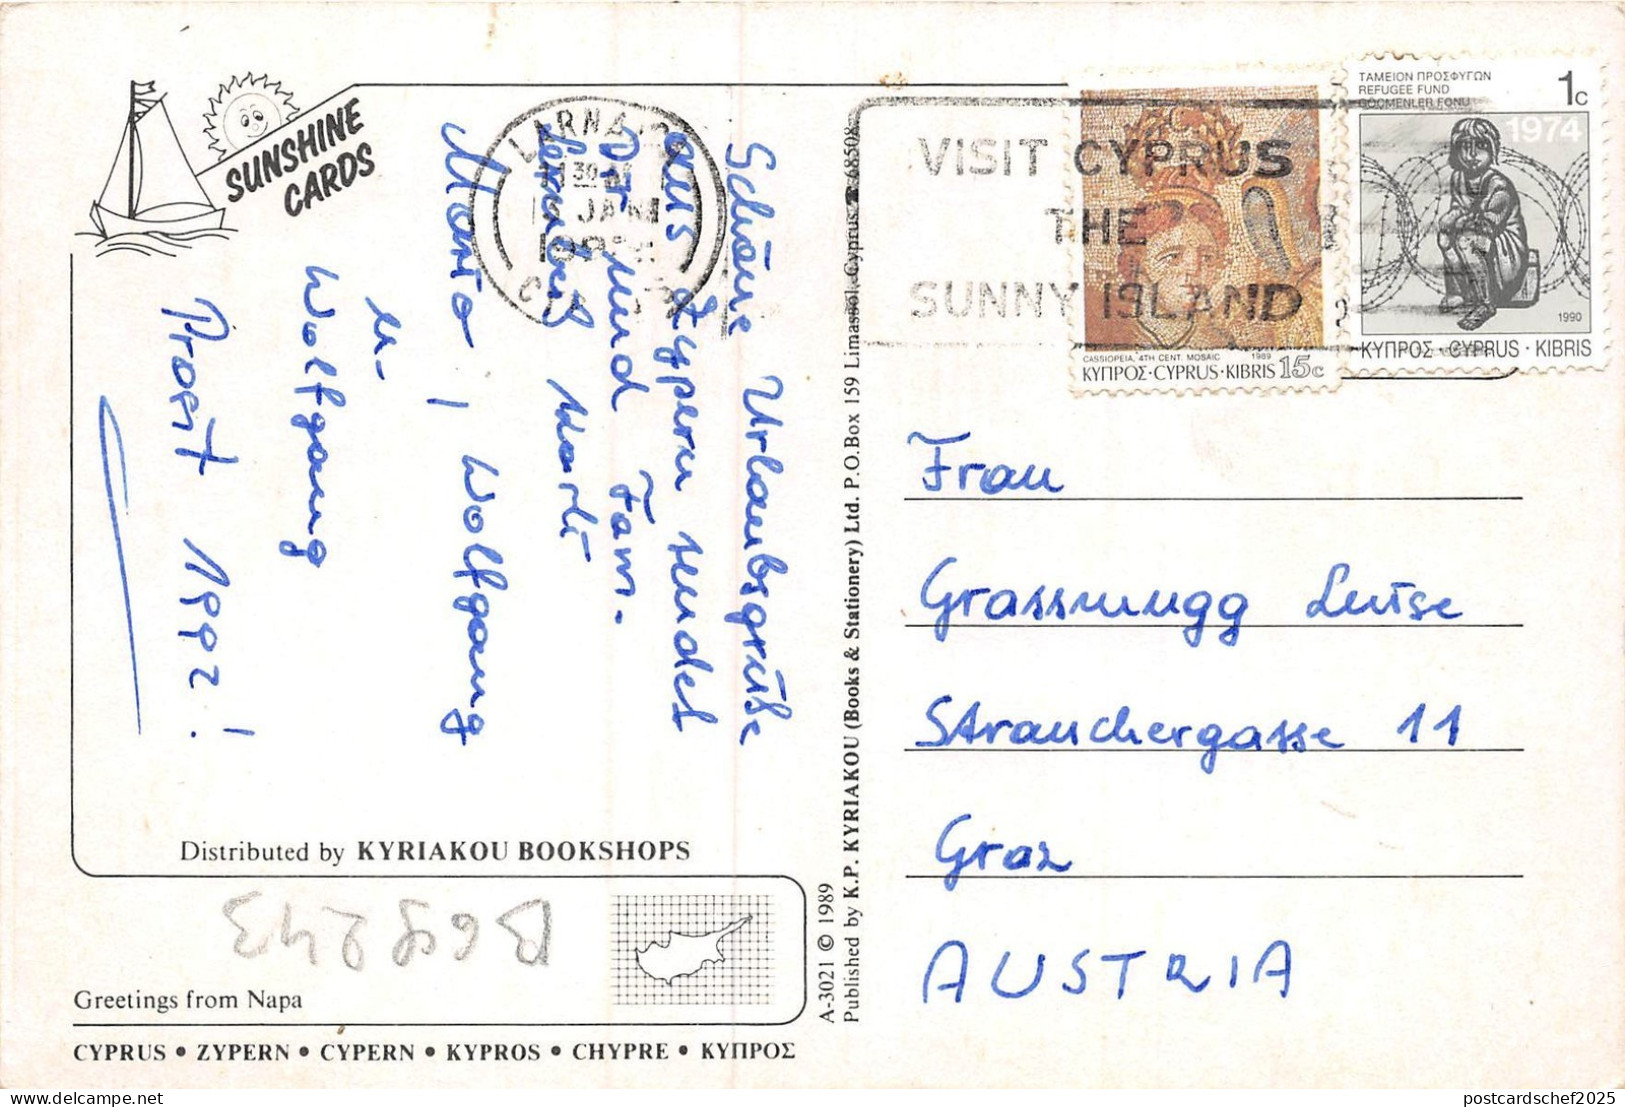 SUNSHINE
CARDS
LARNA
JAN
VISIT CYPRUS
THE
SUNNY ISLAND
CASSIOPEIA, 4TH CENT. MOSAIC 1989
ΚΥΠΡΟΣ·CYPRUS·KIBRIS 15c
ΤΑΜΕΙΟΝ ΠΡΟΣΦΥΓΩΝ
REFUGEE FUND
GÖÇMENLER FONU
1c
1974
1990
ΚΥΠΡΟΣ · CYPRUS · KIBRIS
Schöne Urlaubsgrüße
aus Zypern sendet
Dir und Fam.
Marli
Maria, Wolfgang
u.
Wolfgang
Prosit 1992!
Frau
Grassmugg Luise
Strauchergasse 11
Graz
AUSTRIA
Distributed by KYRIAKOU BOOKSHOPS
B68243
Greetings from Napa
CYPRUS • ZYPERN • CYPERN • KYPROS • CHYPRE • ΚΥΠΡΟΣ
A-3021 © 1989
Published by K.P. KYRIAKOU (Books & Stationery) Ltd. P.O.Box 159 Limassol, Cyprus. ☎ 68508
postcardschef2025